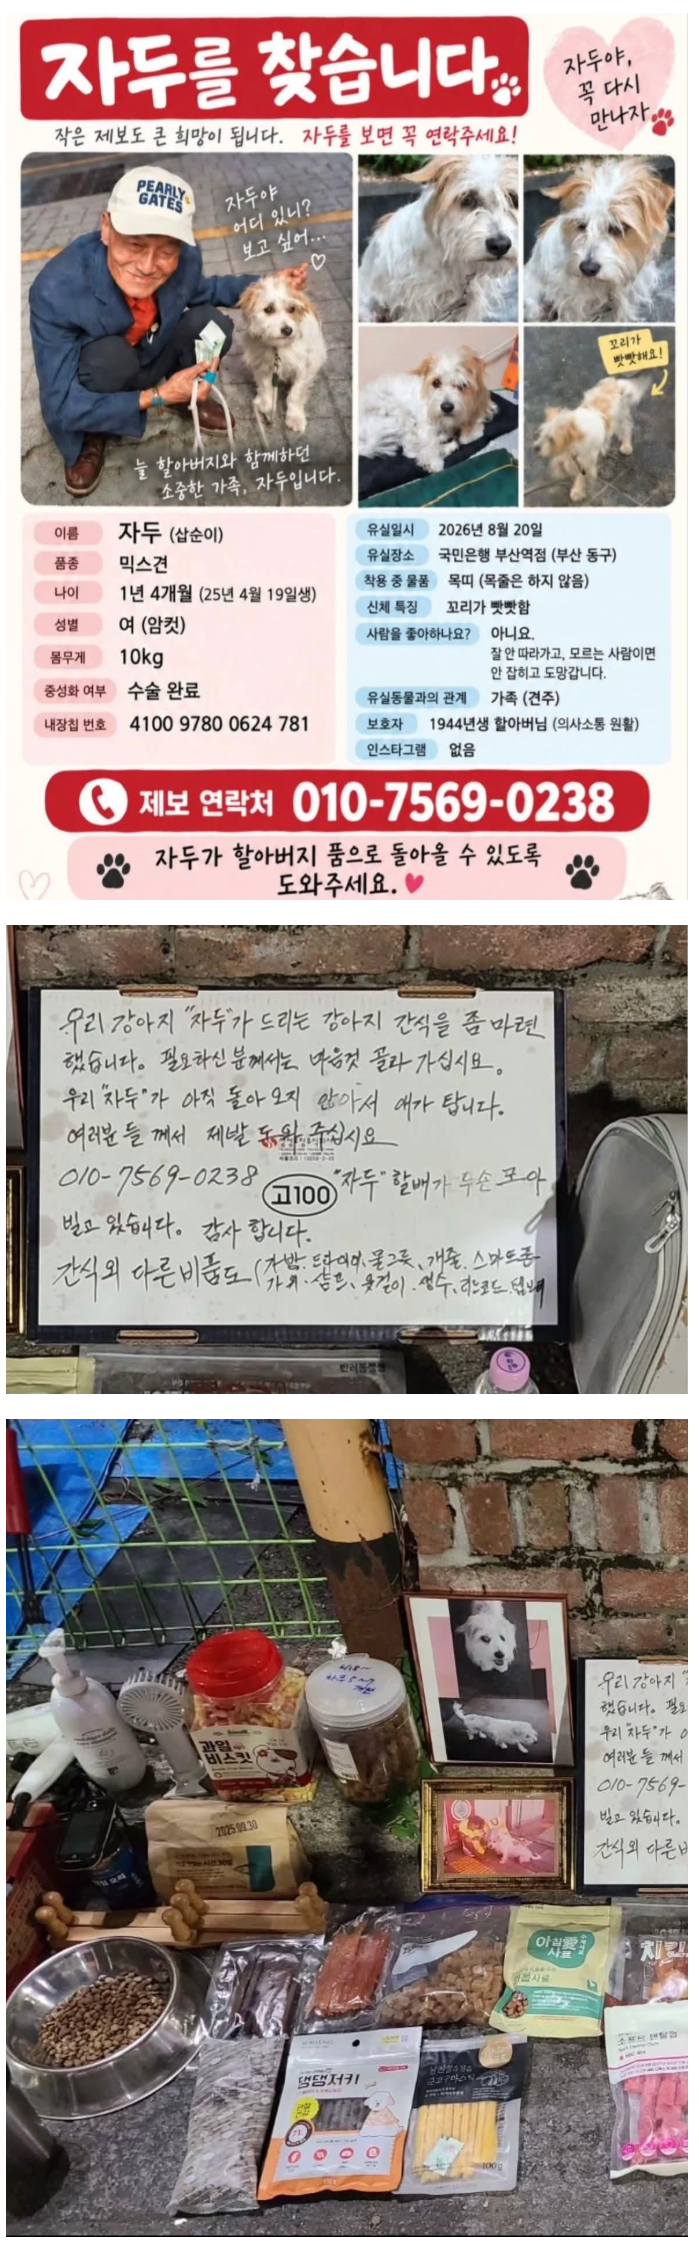 자두를 찾습니다
자두야,
꼭 다시
만나자
작은 제보도 큰 희망이 됩니다. 자두를 보면 꼭 연락주세요!
PEARLY
GATES
자두야
어디 있니?
보고 싶어...
늘 할아버지와 함께하던
소중한 가족, 자두입니다.
꼬리가
빳빳해요!
이름 자두 (삽순이)
품종 믹스견
나이 1년 4개월 (25년 4월 19일생)
성별 여 (암컷)
몸무게 10kg
중성화 여부 수술 완료
내장칩 번호 4100 9780 0624 781
유실일시 2026년 8월 20일
유실장소 국민은행 부산역점 (부산 동구)
착용 중 물품 목띠 (목줄은 하지 않음)
신체 특징 꼬리가 빳빳함
사람을 좋아하나요? 아니요.
잘 안 따라가고, 모르는 사람이면
안 잡히고 도망갑니다.
유실동물과의 관계 가족 (견주)
보호자 1944년생 할아버님 (의사소통 원활)
인스타그램 없음
제보 연락처 010-7569-0238
자두가 할아버지 품으로 돌아올 수 있도록
도와주세요.
우리 강아지 "자두"가 드리는 강아지 간식을 좀 마련
했습니다. 필요하신 분께서는 마음껏 골라 가십시요.
우리 "자두"가 아직 돌아 오지 않아서 애가 탑니다.
여러분들께서 제발 도와 주십시요
010-7569-0238 "자두" 할배가 두손 모아
고100
빌고 있습니다. 감사 합니다.
간식외 다른비품도 (가방. 드라이어. 물그릇, 개줄. 스마트폰
가위. 샴푸, 옷걸이. 생수,
반려동물용
과일
비스킷
2025.09.30
우리 강아지 "
했습니다. 필
우리 "자두"가
여러분들께서
010-7569-
빌고 있습니다.
간식외 다른
아침愛
사료
치킨
댕댕져키
100g